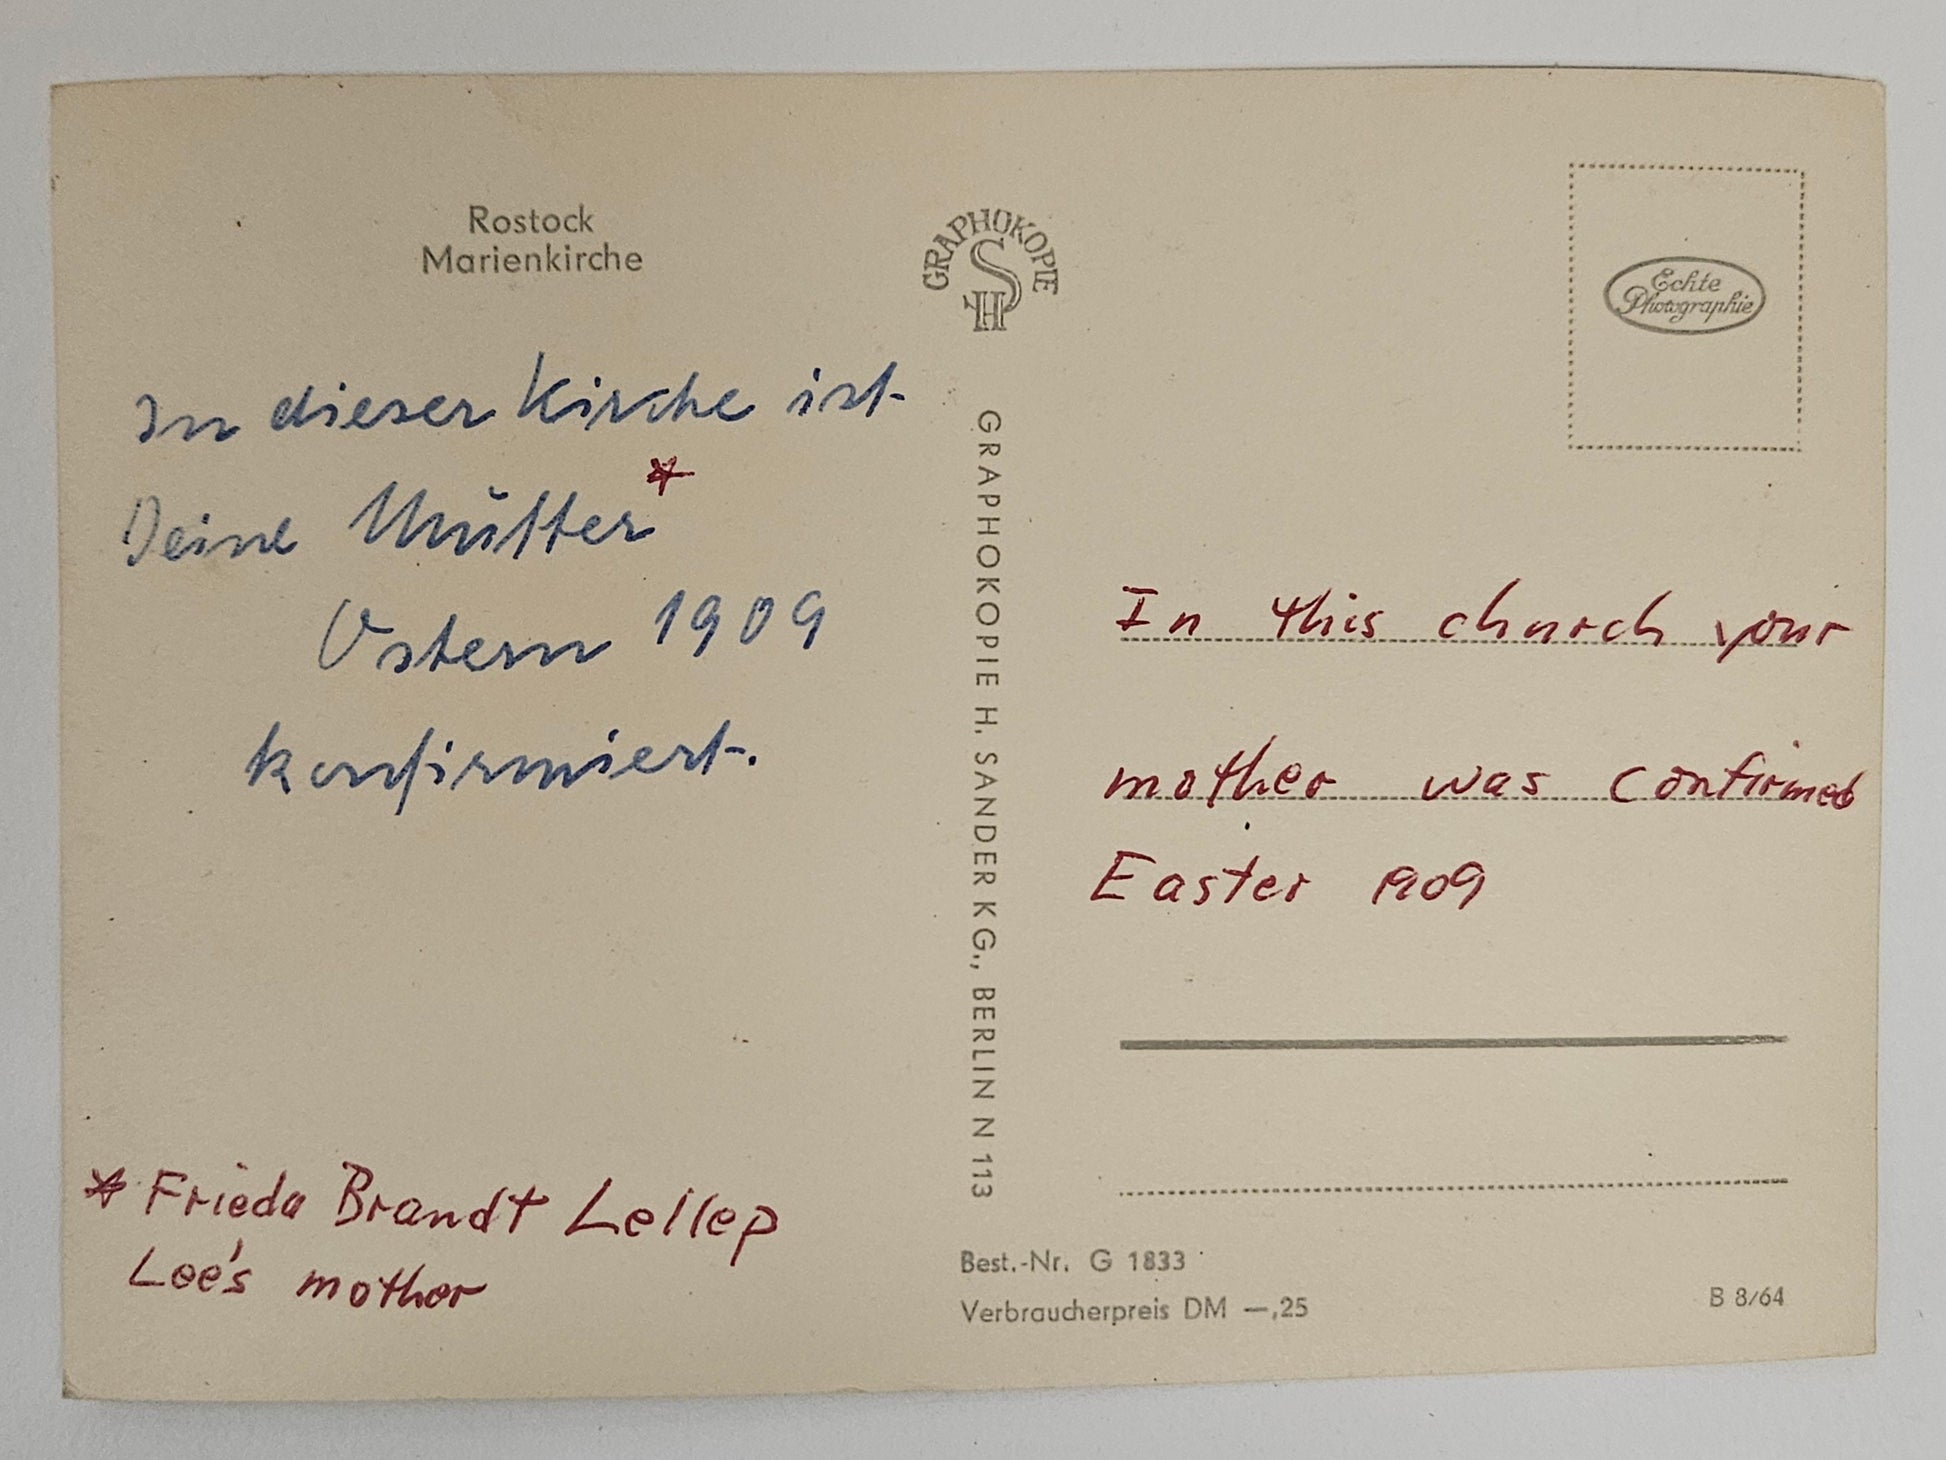 Rostock
Marienkirche
In dieser Kirche ist
Deine Mutter*
Ostern 1909
konfirmiert.
* Frieda Brandt Lellep
Lee's mother
GRAPHOKOPIE
HS
GRAPHOKOPIE H. SANDER KG., BERLIN N 113
Echte
Photographie
In this church your
mother was confirmed
Easter 1909
Best.-Nr. G 1833
Verbraucherpreis DM —,25
B 8/64